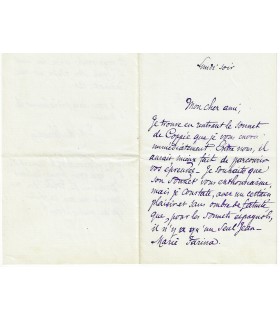 Lundi soir
Mon cher ami,
Je trouve en rentrant le sonnet
de Coppée que je vous envoie
immédiatement. Entre nous, il
aurait mieux fait de parcourir
vos épreuves. Je souhaite que
son sonnet vous enthousiasme,
mais je constate, avec un certain
plaisir et sans ombre de fatuité
que, pour les sonnets espagnols,
il n'y a qu'un seul Jean-
Marie Farina.